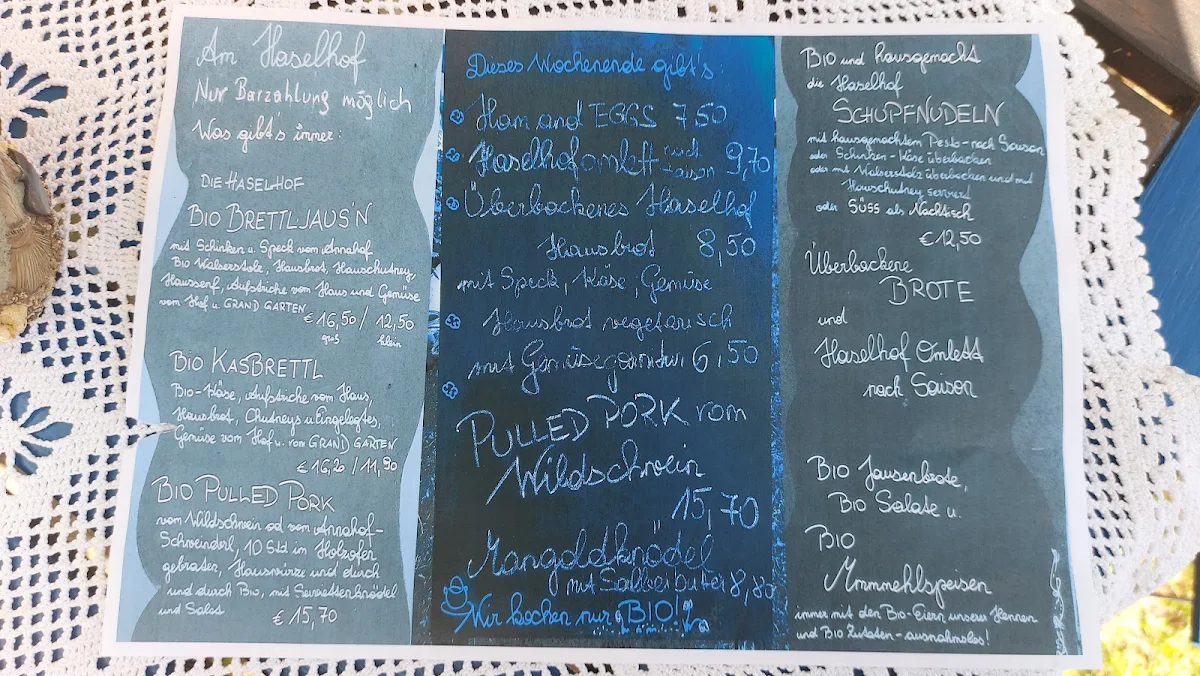 Am Haselhof
Nur Barzahlung möglich
Was gibt's immer:
DIE HASELHOF
BIO BRETTLJAUS'N
mit Schinken u. Speck vom Annahof
BIO Walserstolz, Hausbrot, Hauschutney,
Haussenf, Aufstriche vom Haus und Gemüse
vom Hof u. GRAND GARTEN
€ 16,50 / 12,50
groß klein
BIO KASBRETTL
Bio-Käse, Aufstriche vom Haus,
Hausbrot, Chutneys u. Eingelegtes,
Gemüse vom Hof u. vom GRAND GARTEN
€ 16,20 / 11,90
BIO PULLED PORK
vom Wildschwein od vom Annahof-
Schweinderl, 10 Std im Holzofen
gebraten, Hauswürze und durch
und durch Bio, mit Serviettenknödel
und Salat
€ 15,70
Dieses Wochenende gibt's:
Ham and EGGS 7,50
Haselhofomlett nach Saison 9,70
Überbackenes Haselhof
Hausbrot 8,50
mit Speck, Käse, Gemüse
Hausbrot vegetarisch
mit Gemüsegarnitur 6,50
PULLED PORK vom
Wildschwein
15,70
Mangoldknödel
mit Salbeibutter 8,80
Wir kochen nur BIO!
BIO und hausgemacht
die Haselhof
SCHUPFNUDELN
mit hausgemachtem Pesto - nach Saison
oder Schinken - Käse überbacken
oder mit Walserstolz überbacken und mit
Hauschutney serviert
oder SÜSS als Nachtisch
€ 12,50
Überbackene
BROTE
und
Haselhof Omlett
nach Saison
BIO Jausenbrote,
BIO Salate u.
BIO
Mmmmehlspeisen
immer mit den Bio-Eiern unserer Hennen
und BIO Zutaten - ausnahmslos!